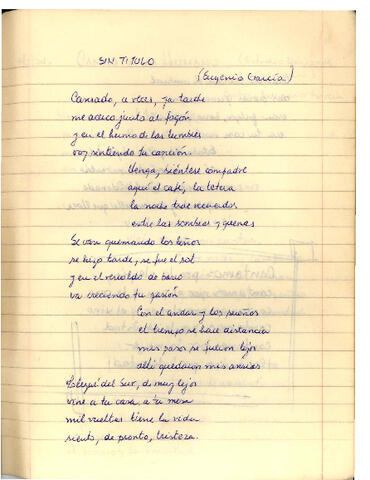 SIN TITULO
(Eugenio García)
Cansado, a veces, ya tarde
me acerco junto al fogón
y en el humo de las lumbres
voy sintiendo tu canción.
Venga, siéntese compadre
aquí el café, la tetera
la noche trae recuerdos
entre las sombras y quenas
Se van quemando los leños
se hizo tarde, se fue el sol
y en el rescoldo de barro
va creciendo tu pasión
Con el andar y los sueños
el tiempo se hace distancia
mis pasos se fueron lejos
allí quedaron mis ansias
del Sur, de muy lejos
vine a tu casa, a tu mesa
mil vueltas tiene la vida
siento, de pronto, tristeza.